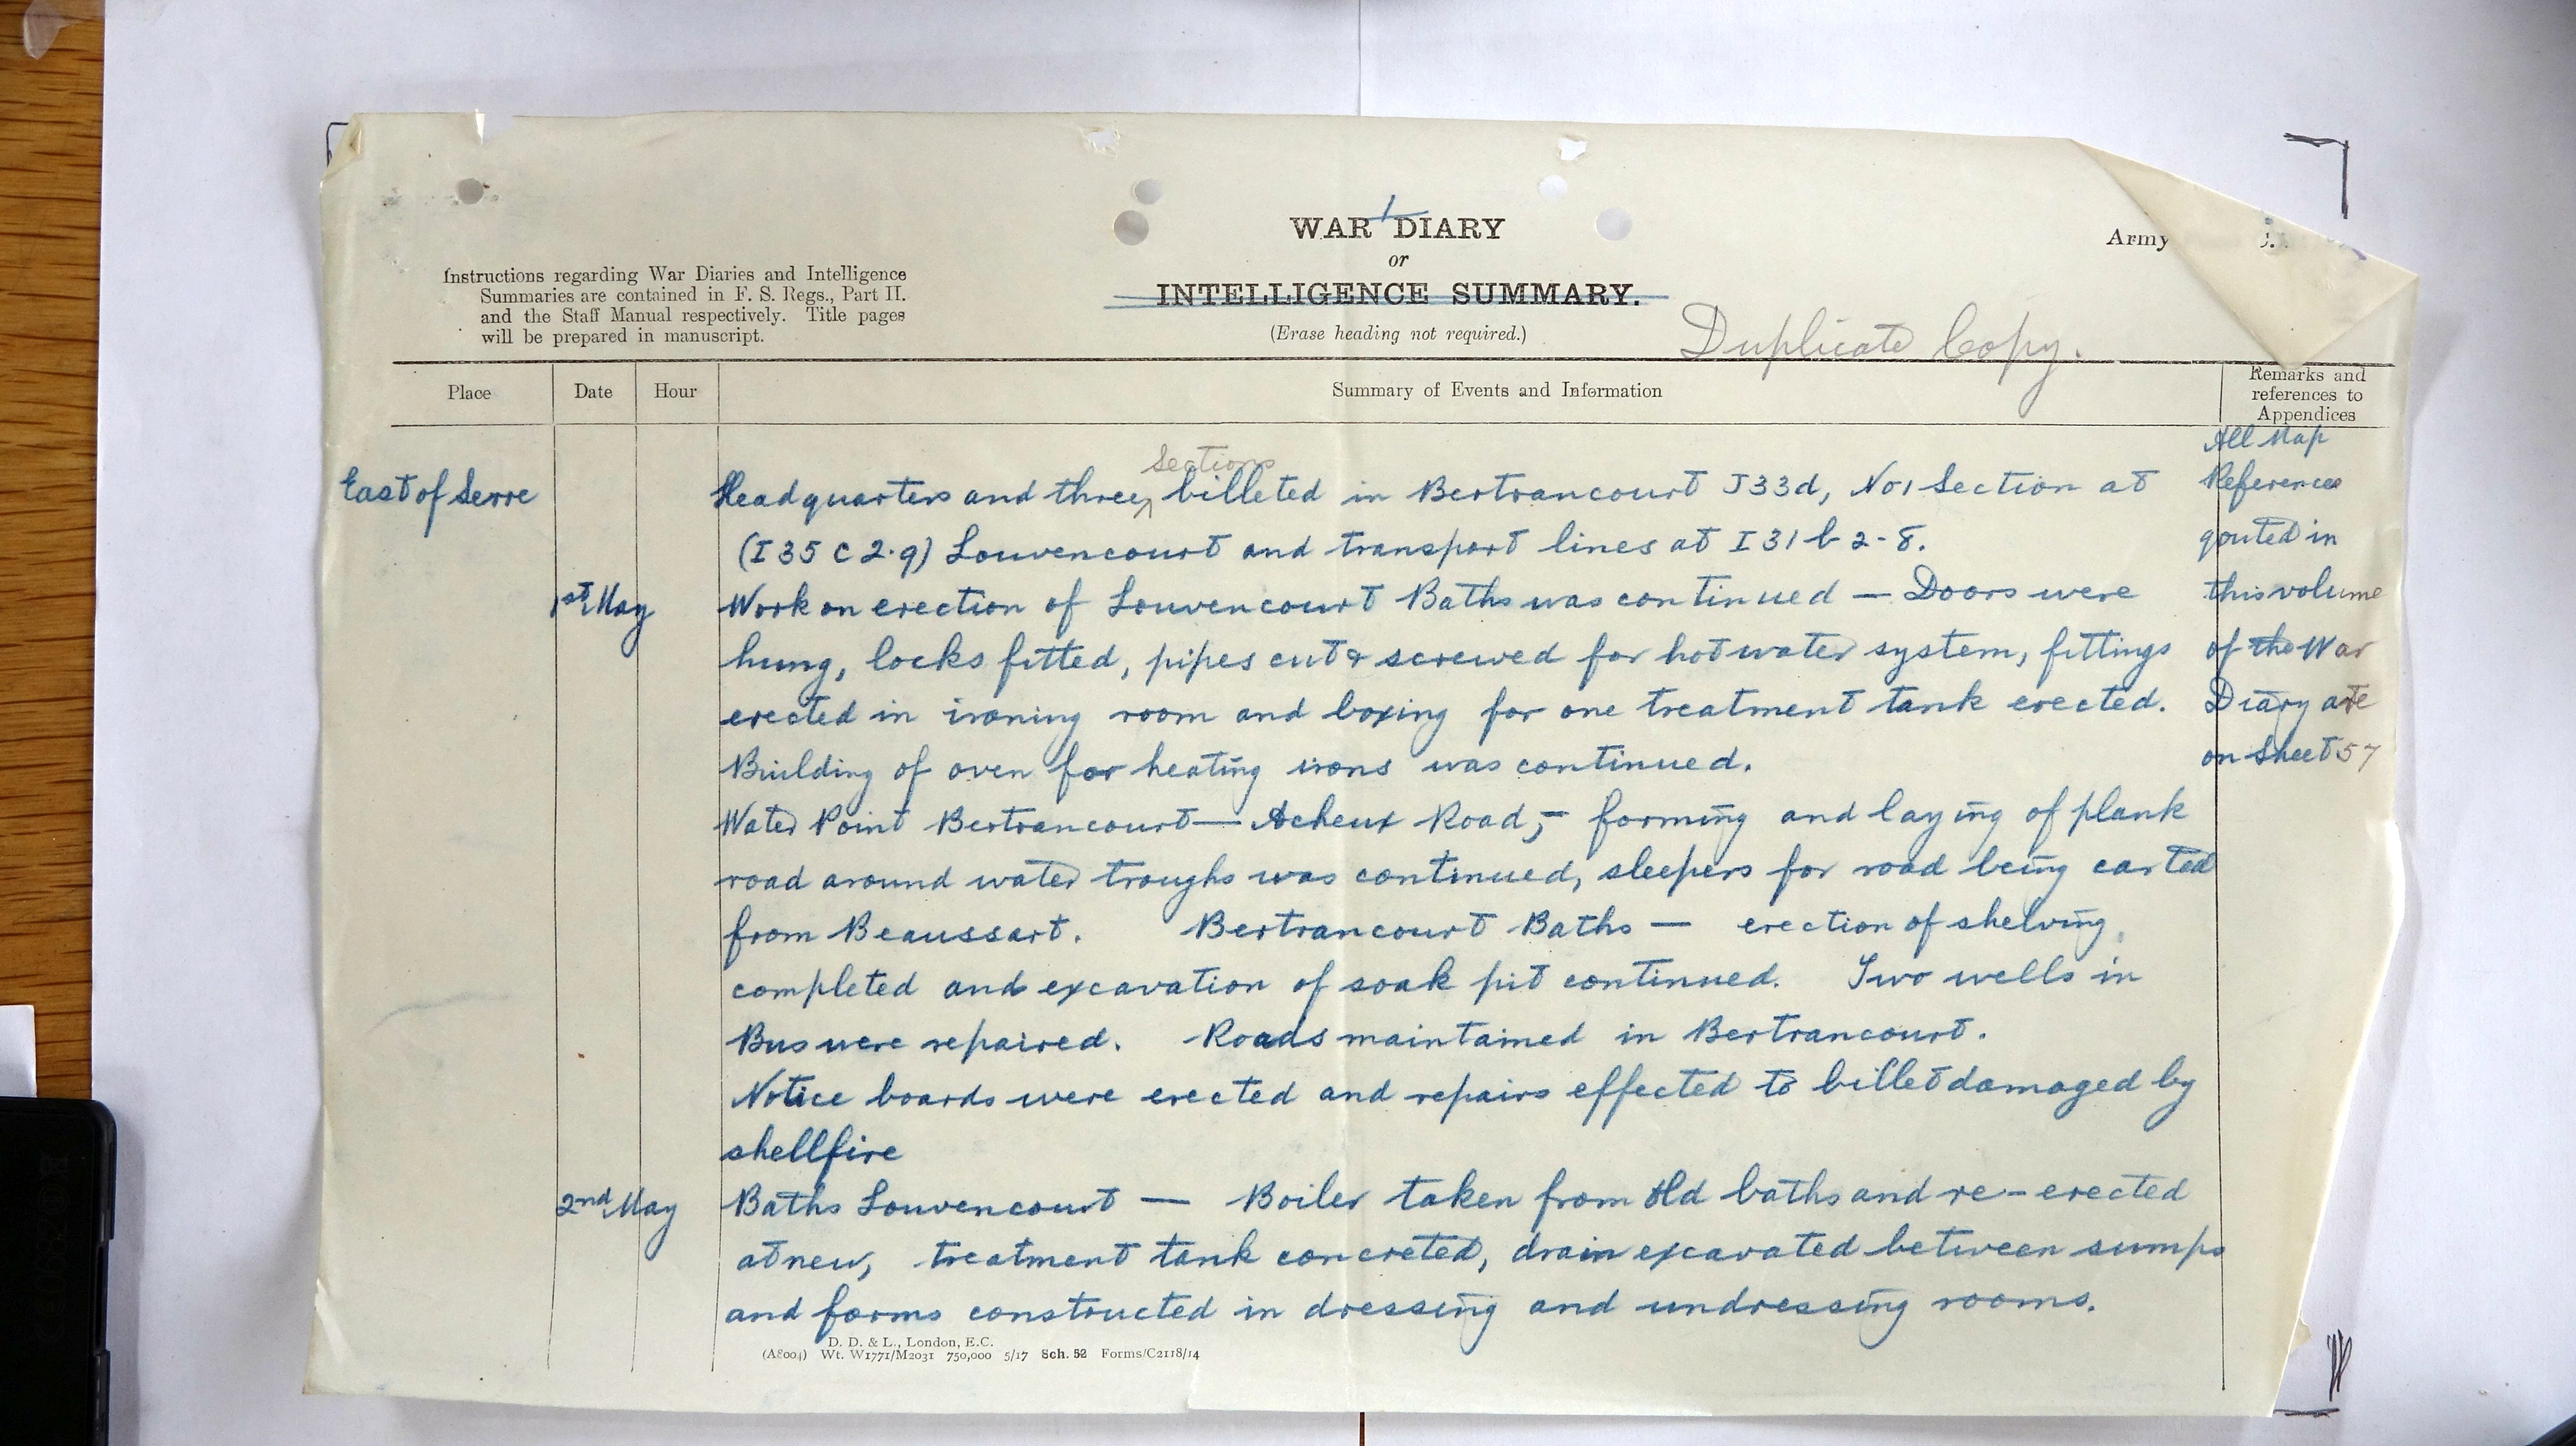 WAR DIARY
or
INTELLIGENCE SUMMARY.
(Erase heading not required.)
Army
Instructions regarding War Diaries and Intelligence
Summaries are contained in F. S. Regs., Part II.
and the Staff Manual respectively. Title pages
will be prepared in manuscript.
Duplicate Copy.
Place Date Hour Summary of Events and Information Remarks and references to Appendices
All Map
References
qouted in
this volume
of the War
Diary are
on Sheet 57
East of Serre
Sections
Headquarters and three billeted in Bertrancourt J33d, No1 Section at
(I 35 c 2.9) Louvencourt and transport lines at I 31 b 2-8.
1st May Work on erection of Louvencourt Baths was continued — Doors were
hung, locks fitted, pipes cut & screwed for hot water system, fittings
erected in ironing room and boxing for one treatment tank erected.
Building of oven for heating irons was continued.
Water Point Bertrancourt — Acheux Road, - forming and laying of plank
road around water troughs was continued, sleepers for road being carted
from Beaussart. Bertrancourt Baths — erection of shelving
completed and excavation of soak pit continued. Two wells in
Bus were repaired. Roads maintained in Bertrancourt.
Notice boards were erected and repairs effected to billet damaged by
shellfire
2nd May Baths Louvencourt — Boiler taken from old baths and re-erected
at new, treatment tank concreted, drain excavated between sumps
and forms constructed in dressing and undressing rooms.
D. D. & L., London, E.C.
(A8004) Wt. W1771/M2031 750,000 5/17 Sch. 52 Forms/C2118/14